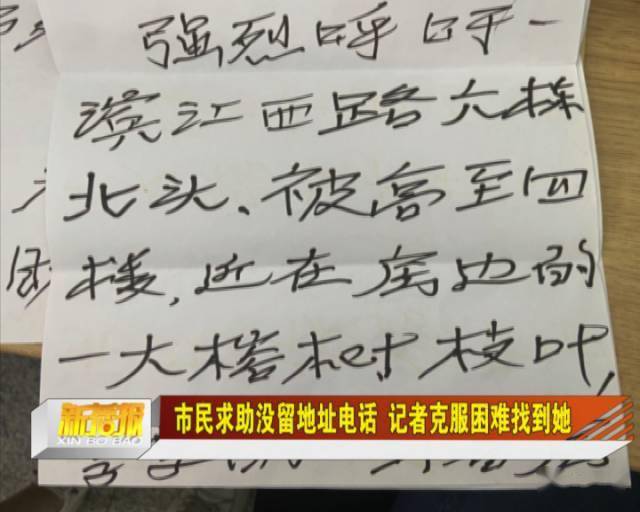 强烈呼吁一
滨江西路六栋
北头、被高至四
楼，近在窗边的
一大榕树枝叶
新播报
XIN BO BAO
市民求助没留地址电话 记者克服困难找到她